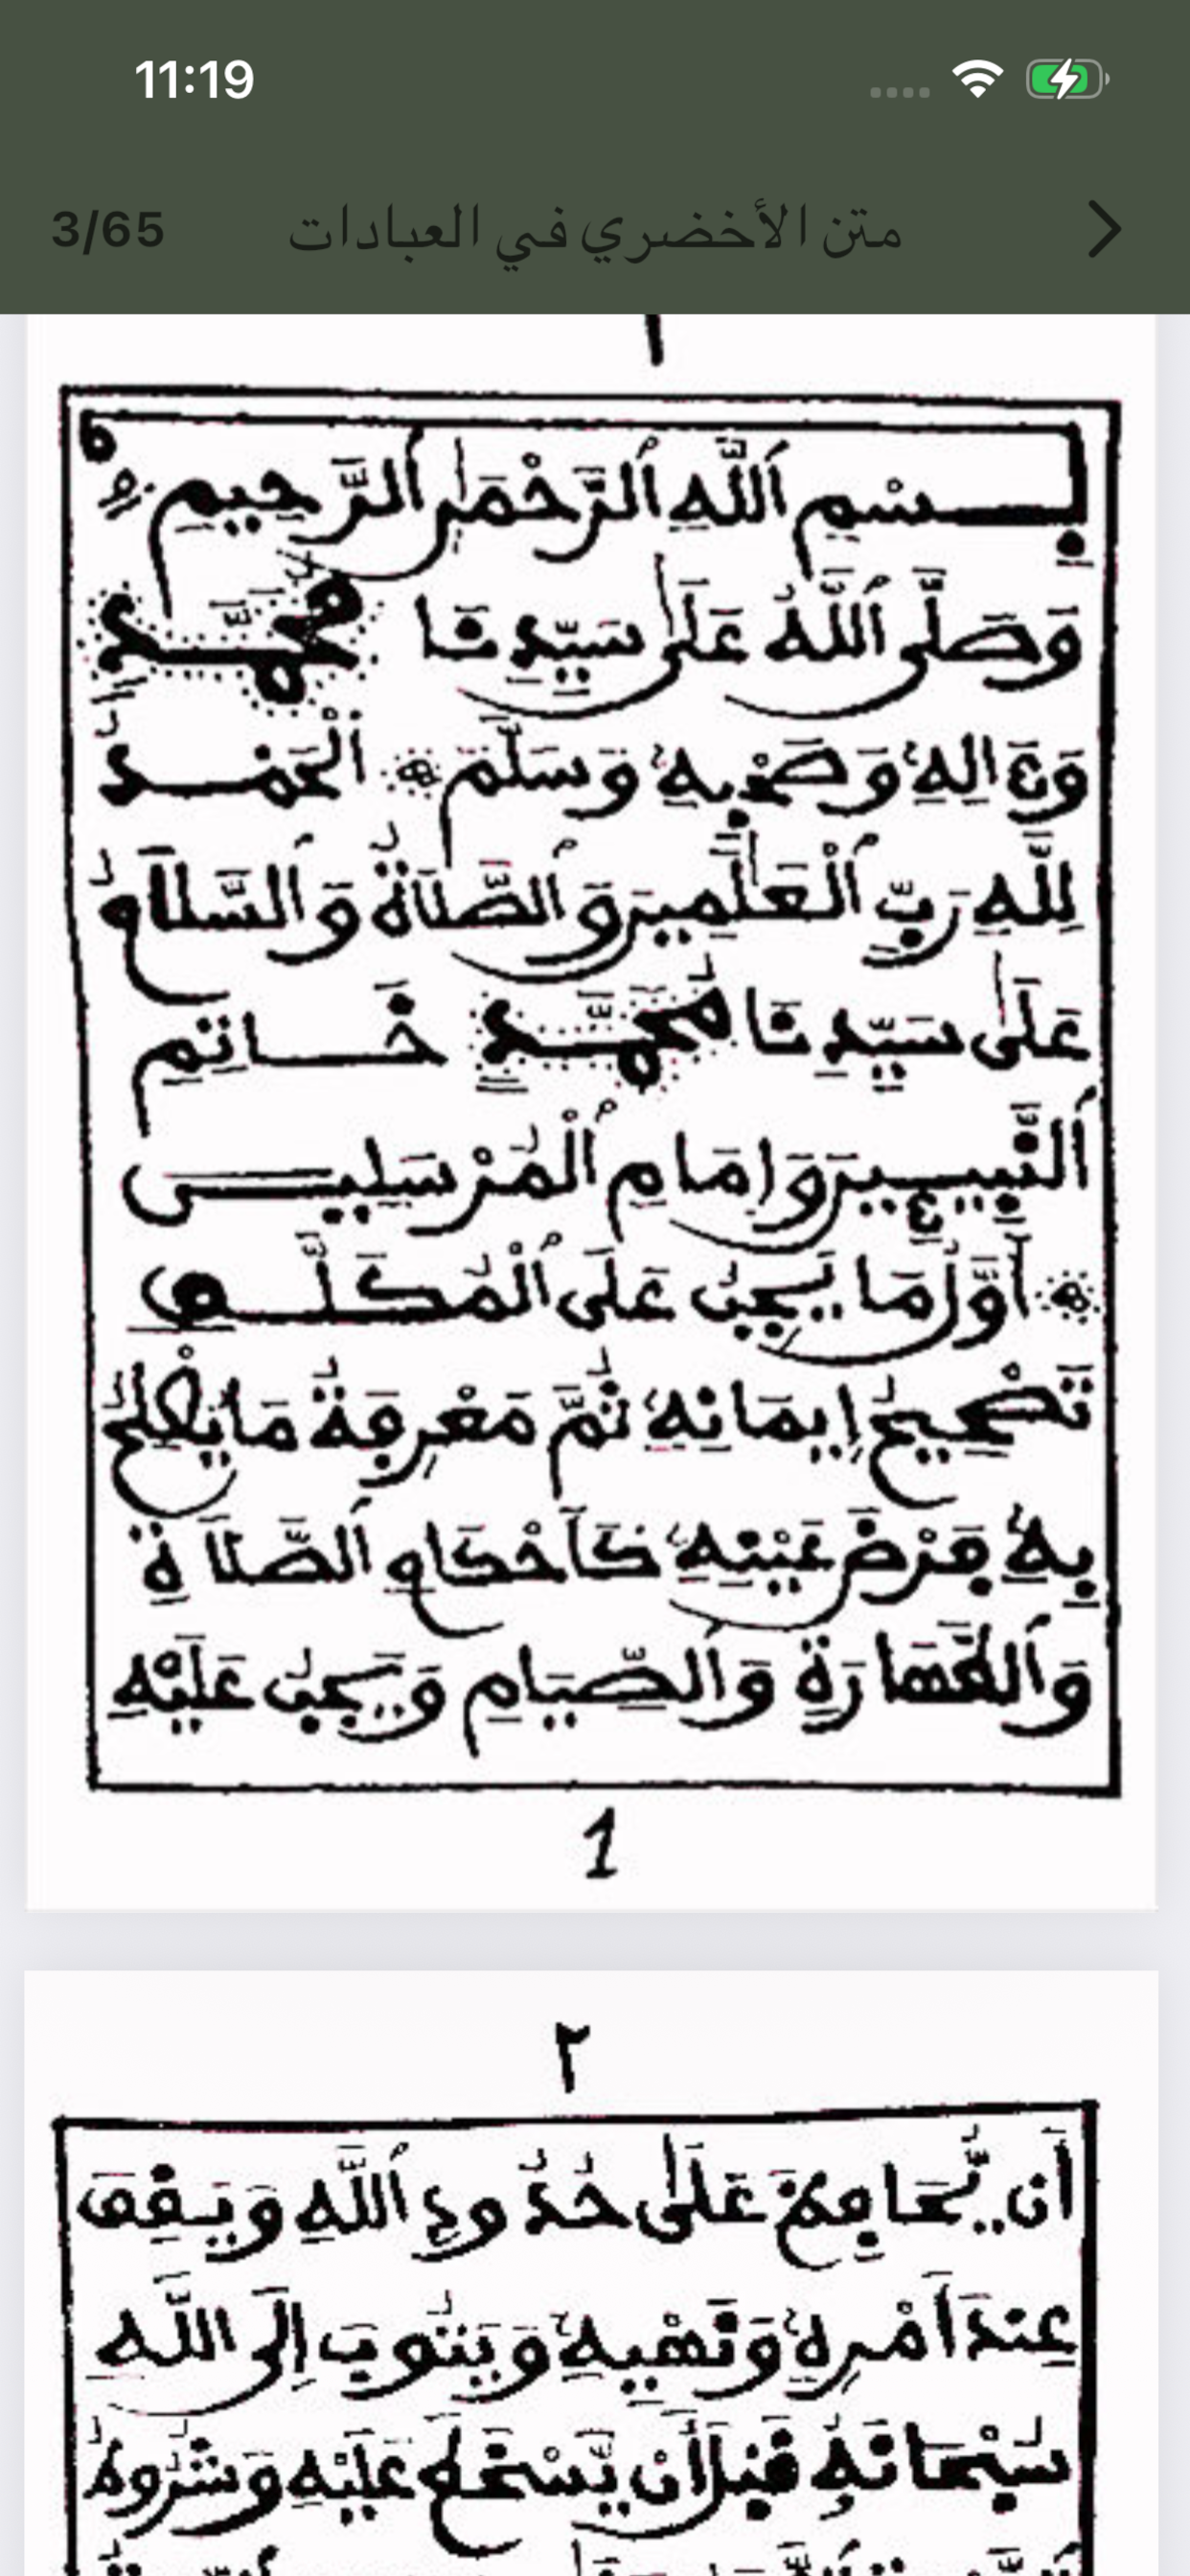 11:19
متن الأخضري في العبادات
3/65
١
بِسْمِ اَللَّهِ اِلرَّحْمَٰنِ اِلرَّحِيمِ
وَصَلَّى اَللَّهُ عَلَىٰ سَيِّدِنَا مُحَمَّدٍ
وَءَالِهِ وَصَحْبِهِ وَسَلَّمَ اَلْحَمْدُ
لِلَّهِ رَبِّ اِلْعَٰلَمِينَ وَالصَّلَاةُ وَالسَّلَامُ
عَلَىٰ سَيِّدِنَا مُحَمَّدٍ خَاتِمِ
اِلنَّبِيـِٕينَ وَإِمَامِ اِلْمُرْسَلِينَ
أَوَّلُ مَا يَجِبُ عَلَى اَلْمُكَلَّفِ
تَصْحِيحُ إِيمَانِهِ ثُمَّ مَعْرِفَةُ مَا يُصْلِحُ
بِهِ فَرْضَ عَيْنِهِ كَأَحْكَامِ اِلصَّلَاةِ
وَالطَّهَارَةِ وَالصِّيَامِ وَيَجِبُ عَلَيْهِ
1
٢
أَن يُّحَافِظَ عَلَىٰ حُدُودِ اِللَّهِ وَيَقِفَ
عِندَ أَمْرِهِ وَنَهْيِهِ وَيَتُوبَ إِلَى اَللَّهِ
سُبْحَانَهُ قَبْلَ أَنْ يَّسْخَطَ عَلَيْهِ وَشُرُوطُ